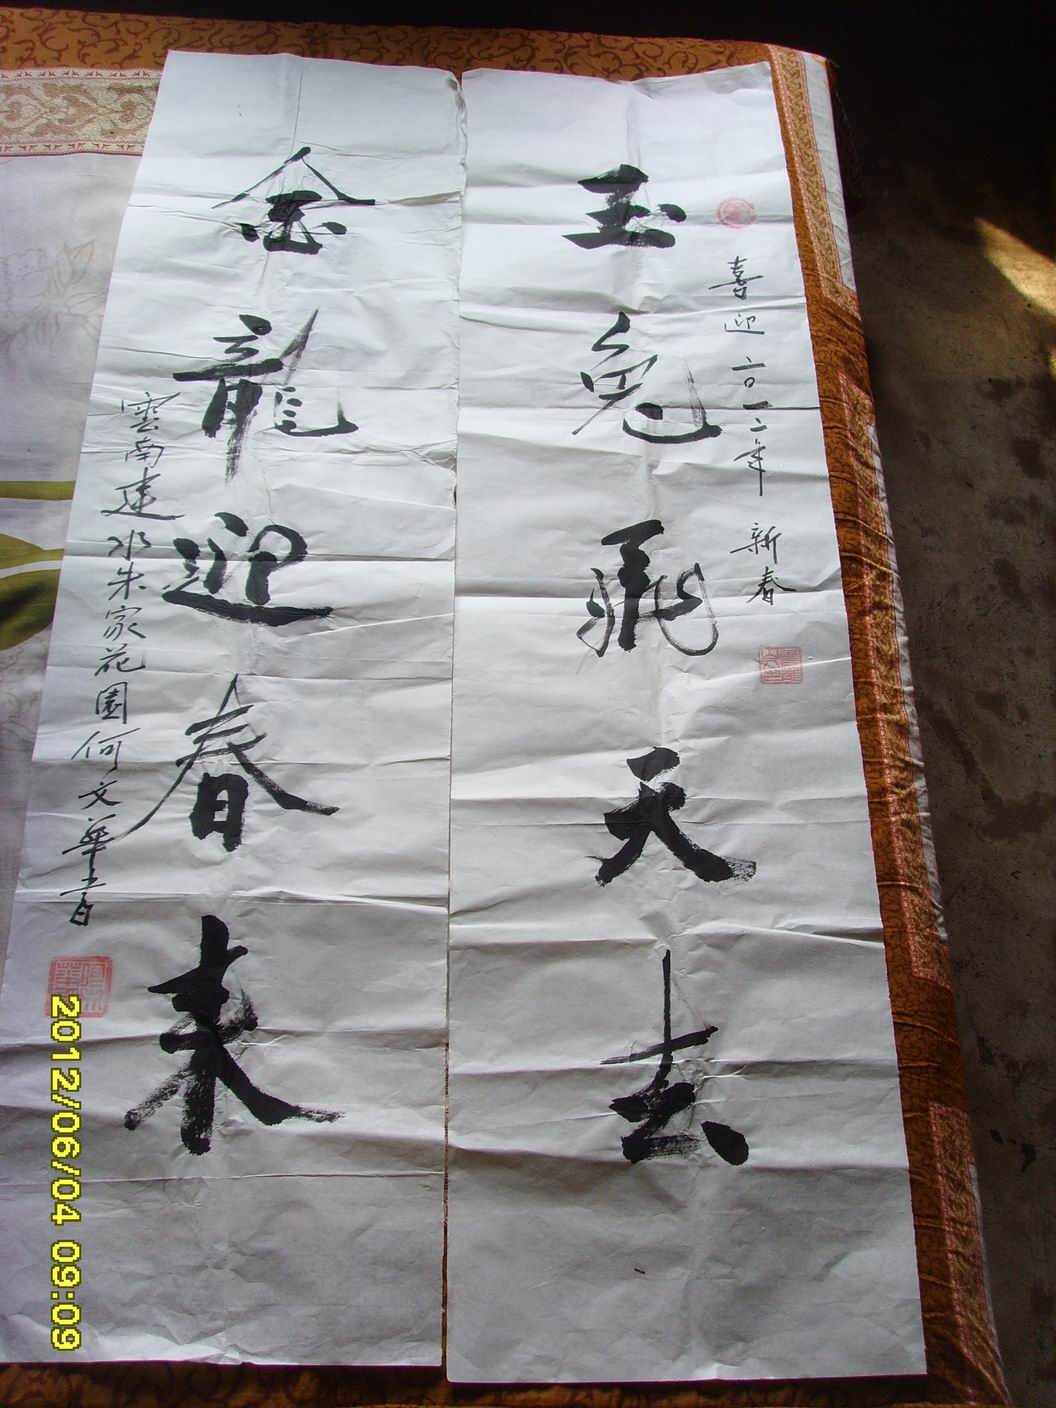 玉兔飛天去
喜迎二〇一二年 新春
金龍迎春來
雲南建水朱家花園何文華書
2012/06/04 09:09